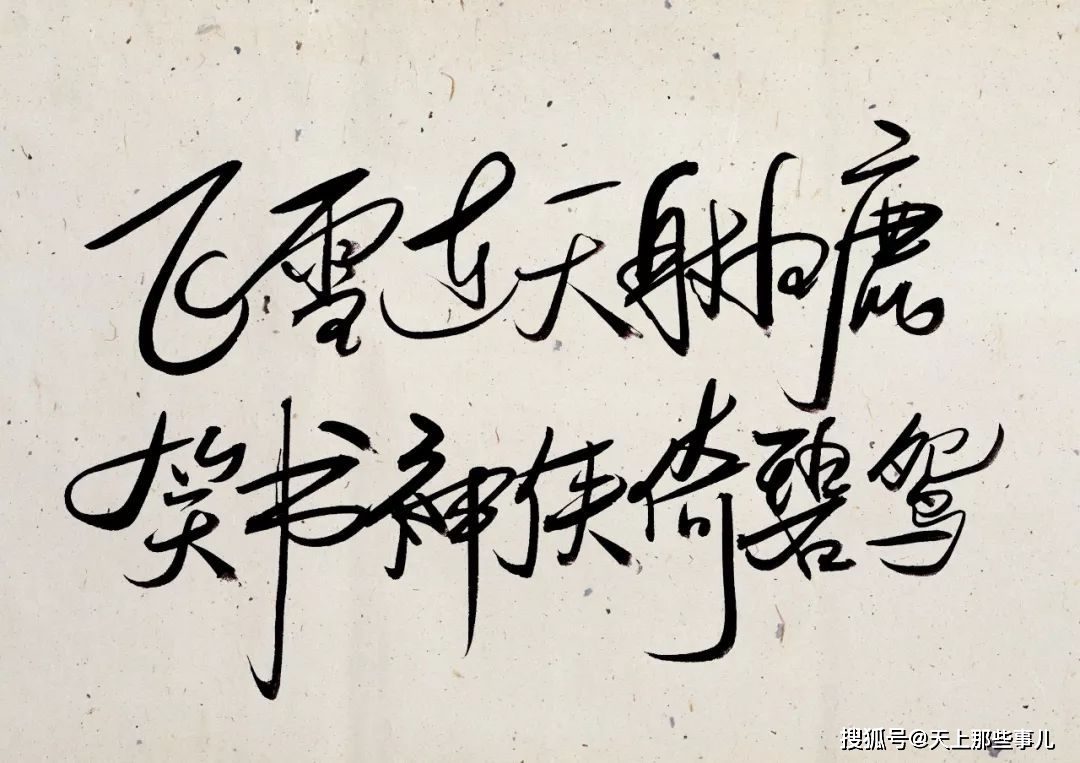 飞雪连天射白鹿
笑书神侠倚碧鸳
搜狐号@天上那些事儿